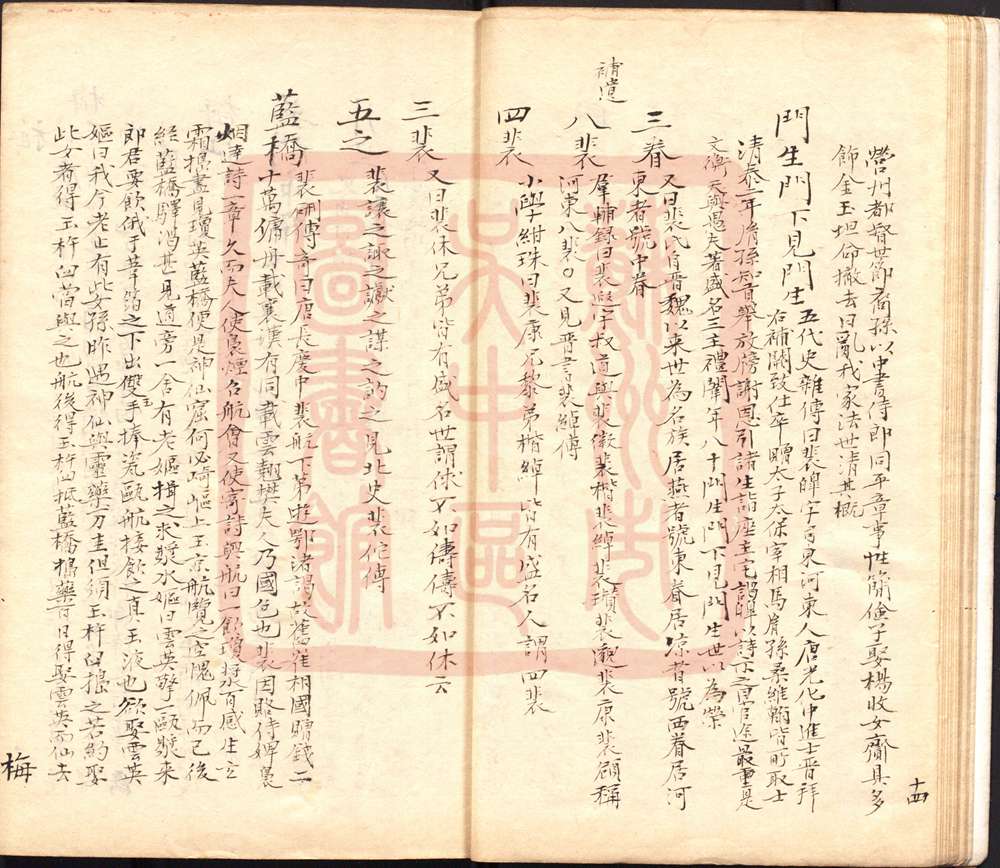 營州都督世節裔孫以中書侍郎同平章事性簡儉子娶楊收女齎具多
飾金玉坦命撤去曰亂我家法世清其概
門生門下見門生五代史雜傳曰裴皞字司東河東人唐光化中進士晉拜
右補闕致仕卒贈太子太保宰相馬胤孫桑維翰皆所取士
清泰二年胤孫知貢舉放榜謝恩引諸生詣座主宅謁皞以詩示之曰官途最重是
文衡天與愚夫著盛名三主禮闈年八十門生門下見門生世以為榮
三眷又曰裴氏自晉魏以來世為名族居燕者號東眷居凉者號西眷居河
東者號中眷
補遺
八裴羣輔錄曰裴遐字叔道與裴徽裴楷裴綽裴瓚裴邈裴康裴頠稱
河東八裴〇又見晉書裴綽傳
四裴小學紺珠曰裴康兄黎弟楷綽皆有盛名人謂四裴
三裴又曰裴休兄弟皆有盛名世謂俅不如儔儔不如休云
五之裴讓之諏之讞之謀之訥之見北史裴佗傳
藍橋裴硎傳奇曰唐長慶中裴航下第遊鄂渚謁故舊崔相國贈錢二
十萬傭舟載襄漢有同載雲翹樊夫人乃國色也裴因賂侍婢裊
烟達詩一章久而夫人使裊煙召航會又使寄詩與航曰一飲瓊漿百感生玄
霜搗盡見瓊英藍橋便是神仙窟何必崎嶇上玉京航覽之空愧佩而已後
經藍橋驛渴甚見道旁一舍有老嫗揖之求漿水嫗曰雲英擎一甌漿來
郎君要飲俄于葦箔之下出雙玉手捧瓷甌航接飲之真玉液也欲娶雲英
嫗曰我今老止有此女孫昨遇神仙與靈藥刀圭但須玉杵臼搗之若約娶
此女者得玉杵臼當與之也航後得玉杵臼抵藍橋搗藥百日得娶雲英而仙去
十四
梅
蘇州市吳中區圖書館